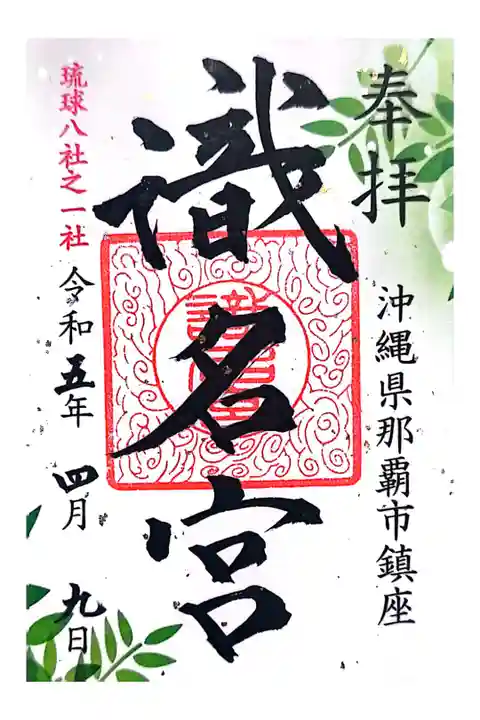 奉拝
沖縄県那覇市鎮座
識名宮
琉球八社之一社
令和五年 四月 九日